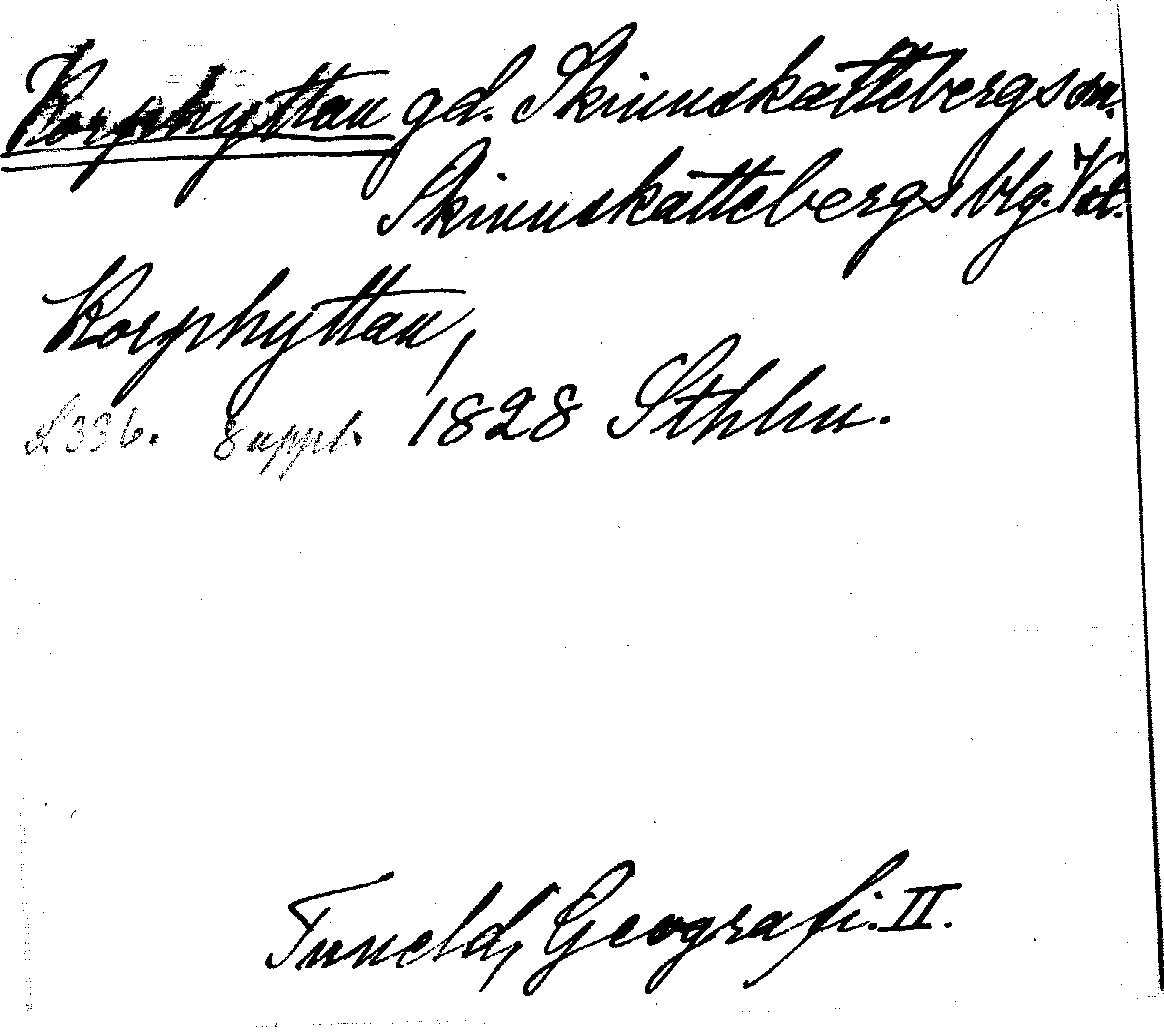 Korphyttan gd. Skinnskattebergs sn.
Skinnskattebergs blg. Vstm.
Korphyttan,
S. 336. Suppl. 1828 Sthlm.
Tuneld, Geografi. II.